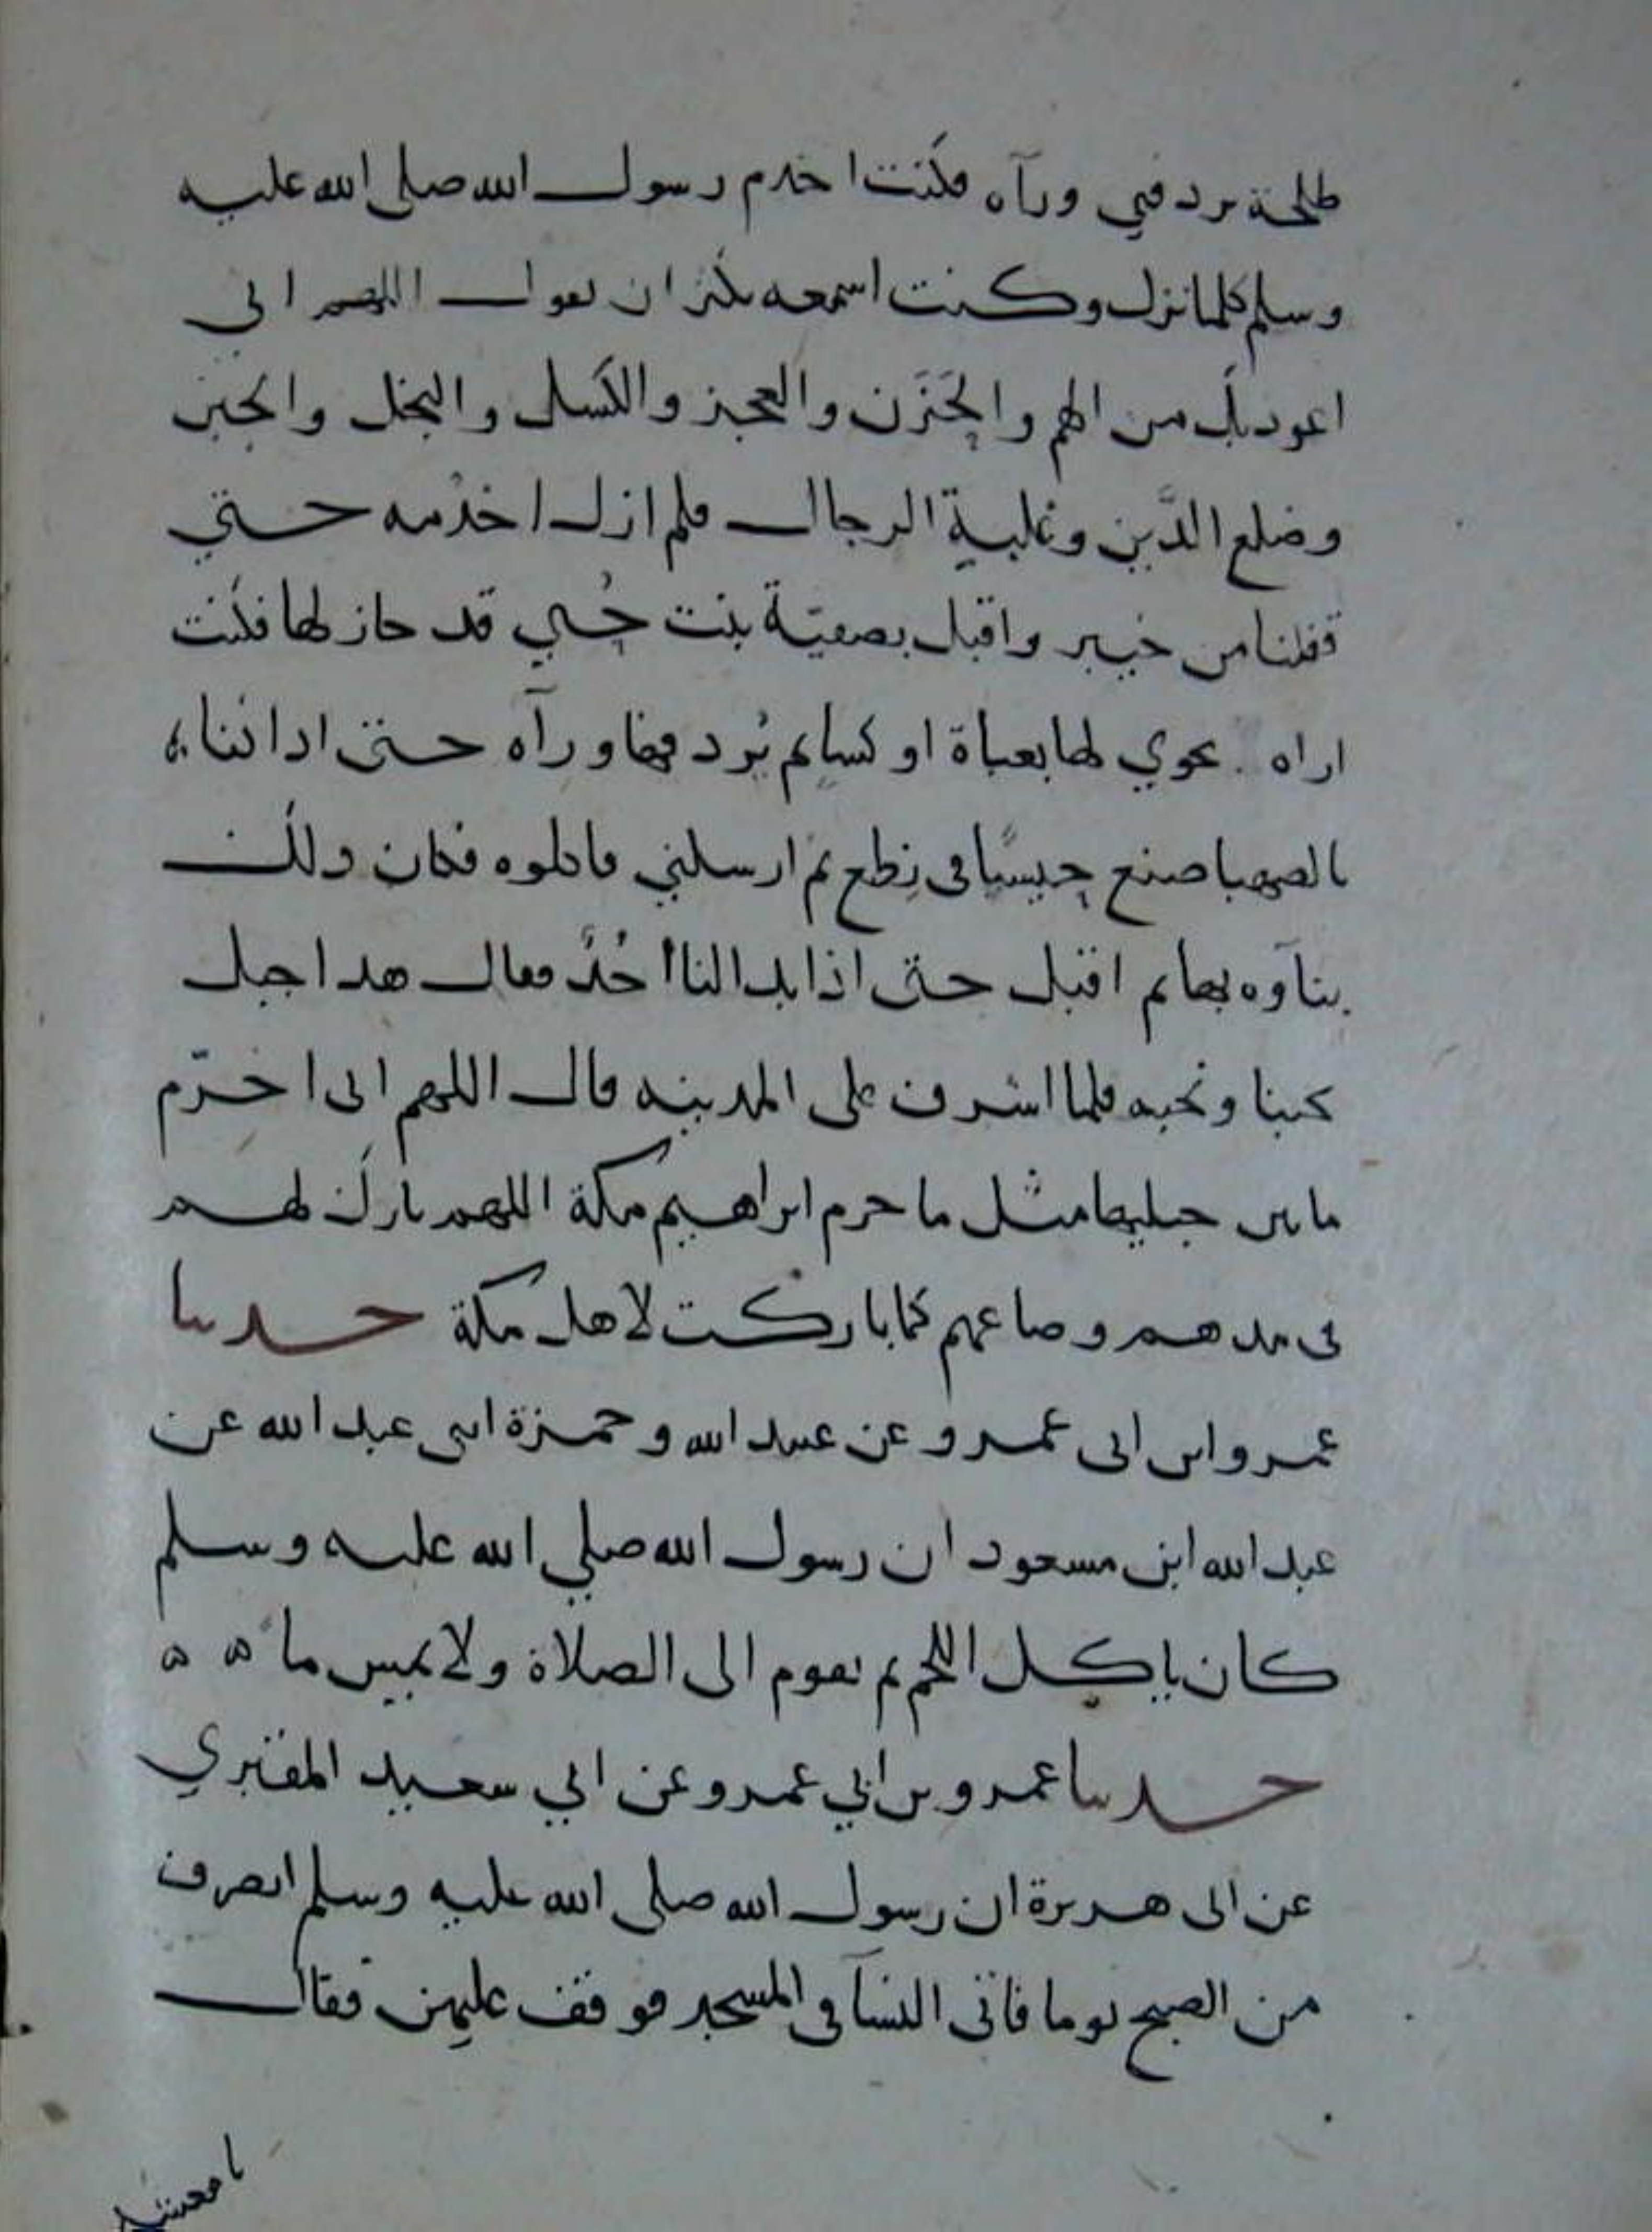 طلحة يردفني ورآه فكنت اخدم رسول الله صلى الله عليه
وسلم كلما نزل وكنت اسمعه يكثر ان يقول اللهم اني
اعوذ بك من الهم والحَزَن والعجز والكسل والبخل والجبن
وضلع الدَّين وغلبةِ الرجال فلم ازل اخدُمه حتي
قفلنا من خيبر واقبل بصفيّة بنت حُيي قد حازلها فكنت
اراه يحوي لها بعباة او كساٍ ثم يُردفها ورآه حتى اذا اتينا
بالصهبا صنع حيسًا في نِطع ثم ارسلني فاكلوه فكان ذلك
بنآوه بها ثم اقبل حتى اذا بدا لنا أُحُدٌ فقال هذا جبل
يحبنا ونحبه فلما اشرف على المدينه قال اللهم انى احرّم
ما بين جبليها مثل ما حرم ابراهيم مكة اللهم بارك لهم
فى مدهم وصاعهم كما باركت لاهل مكة حدثنا
عمرو ابن ابى عمرو عن عبيد الله وحمزة ابنى عبد الله عن
عبد الله ابن مسعود ان رسول الله صلي الله عليه وسلم
كان ياكل اللحم ثم يقوم الى الصلاة ولا يمس ما ه ه
حدثنا عمرو بن ابي عمرو عن ابي سعيد المقبري
عن ابى هريرة ان رسول الله صلى الله عليه وسلم انصرف
من الصبح يوما فاتى النسآ فى المسجد فوقف عليهن فقال
يا معشر